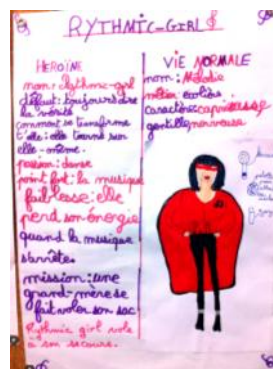 RYTHMIC-GIRL
HEROÏNE
nom: Rythmic-girl
défaut: toujours dire
la vérité
comment se transforme
t'elle: elle tourne sur
elle-même.
passion: danse
point fort: la musique
faiblesse: elle
perd son énergie
quand la musique
s'arrête.
mission: une
grand-mère se
fait voler son sac
Rythmic girl vole
à son secours.
VIE NORMALE
nom: Mélodie
métier: écolière
caractère: capricieuse
gentille nerveuse